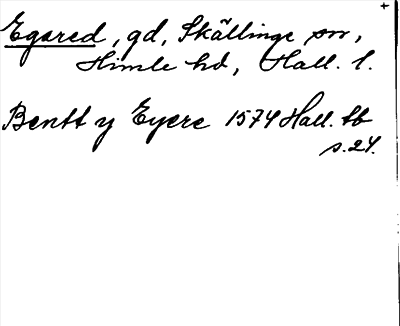 Egared, gd, Skällinge sn,
Himle hd, Hall. l.
Bentt y Eyere 1574 Hall. tb
s. 24.